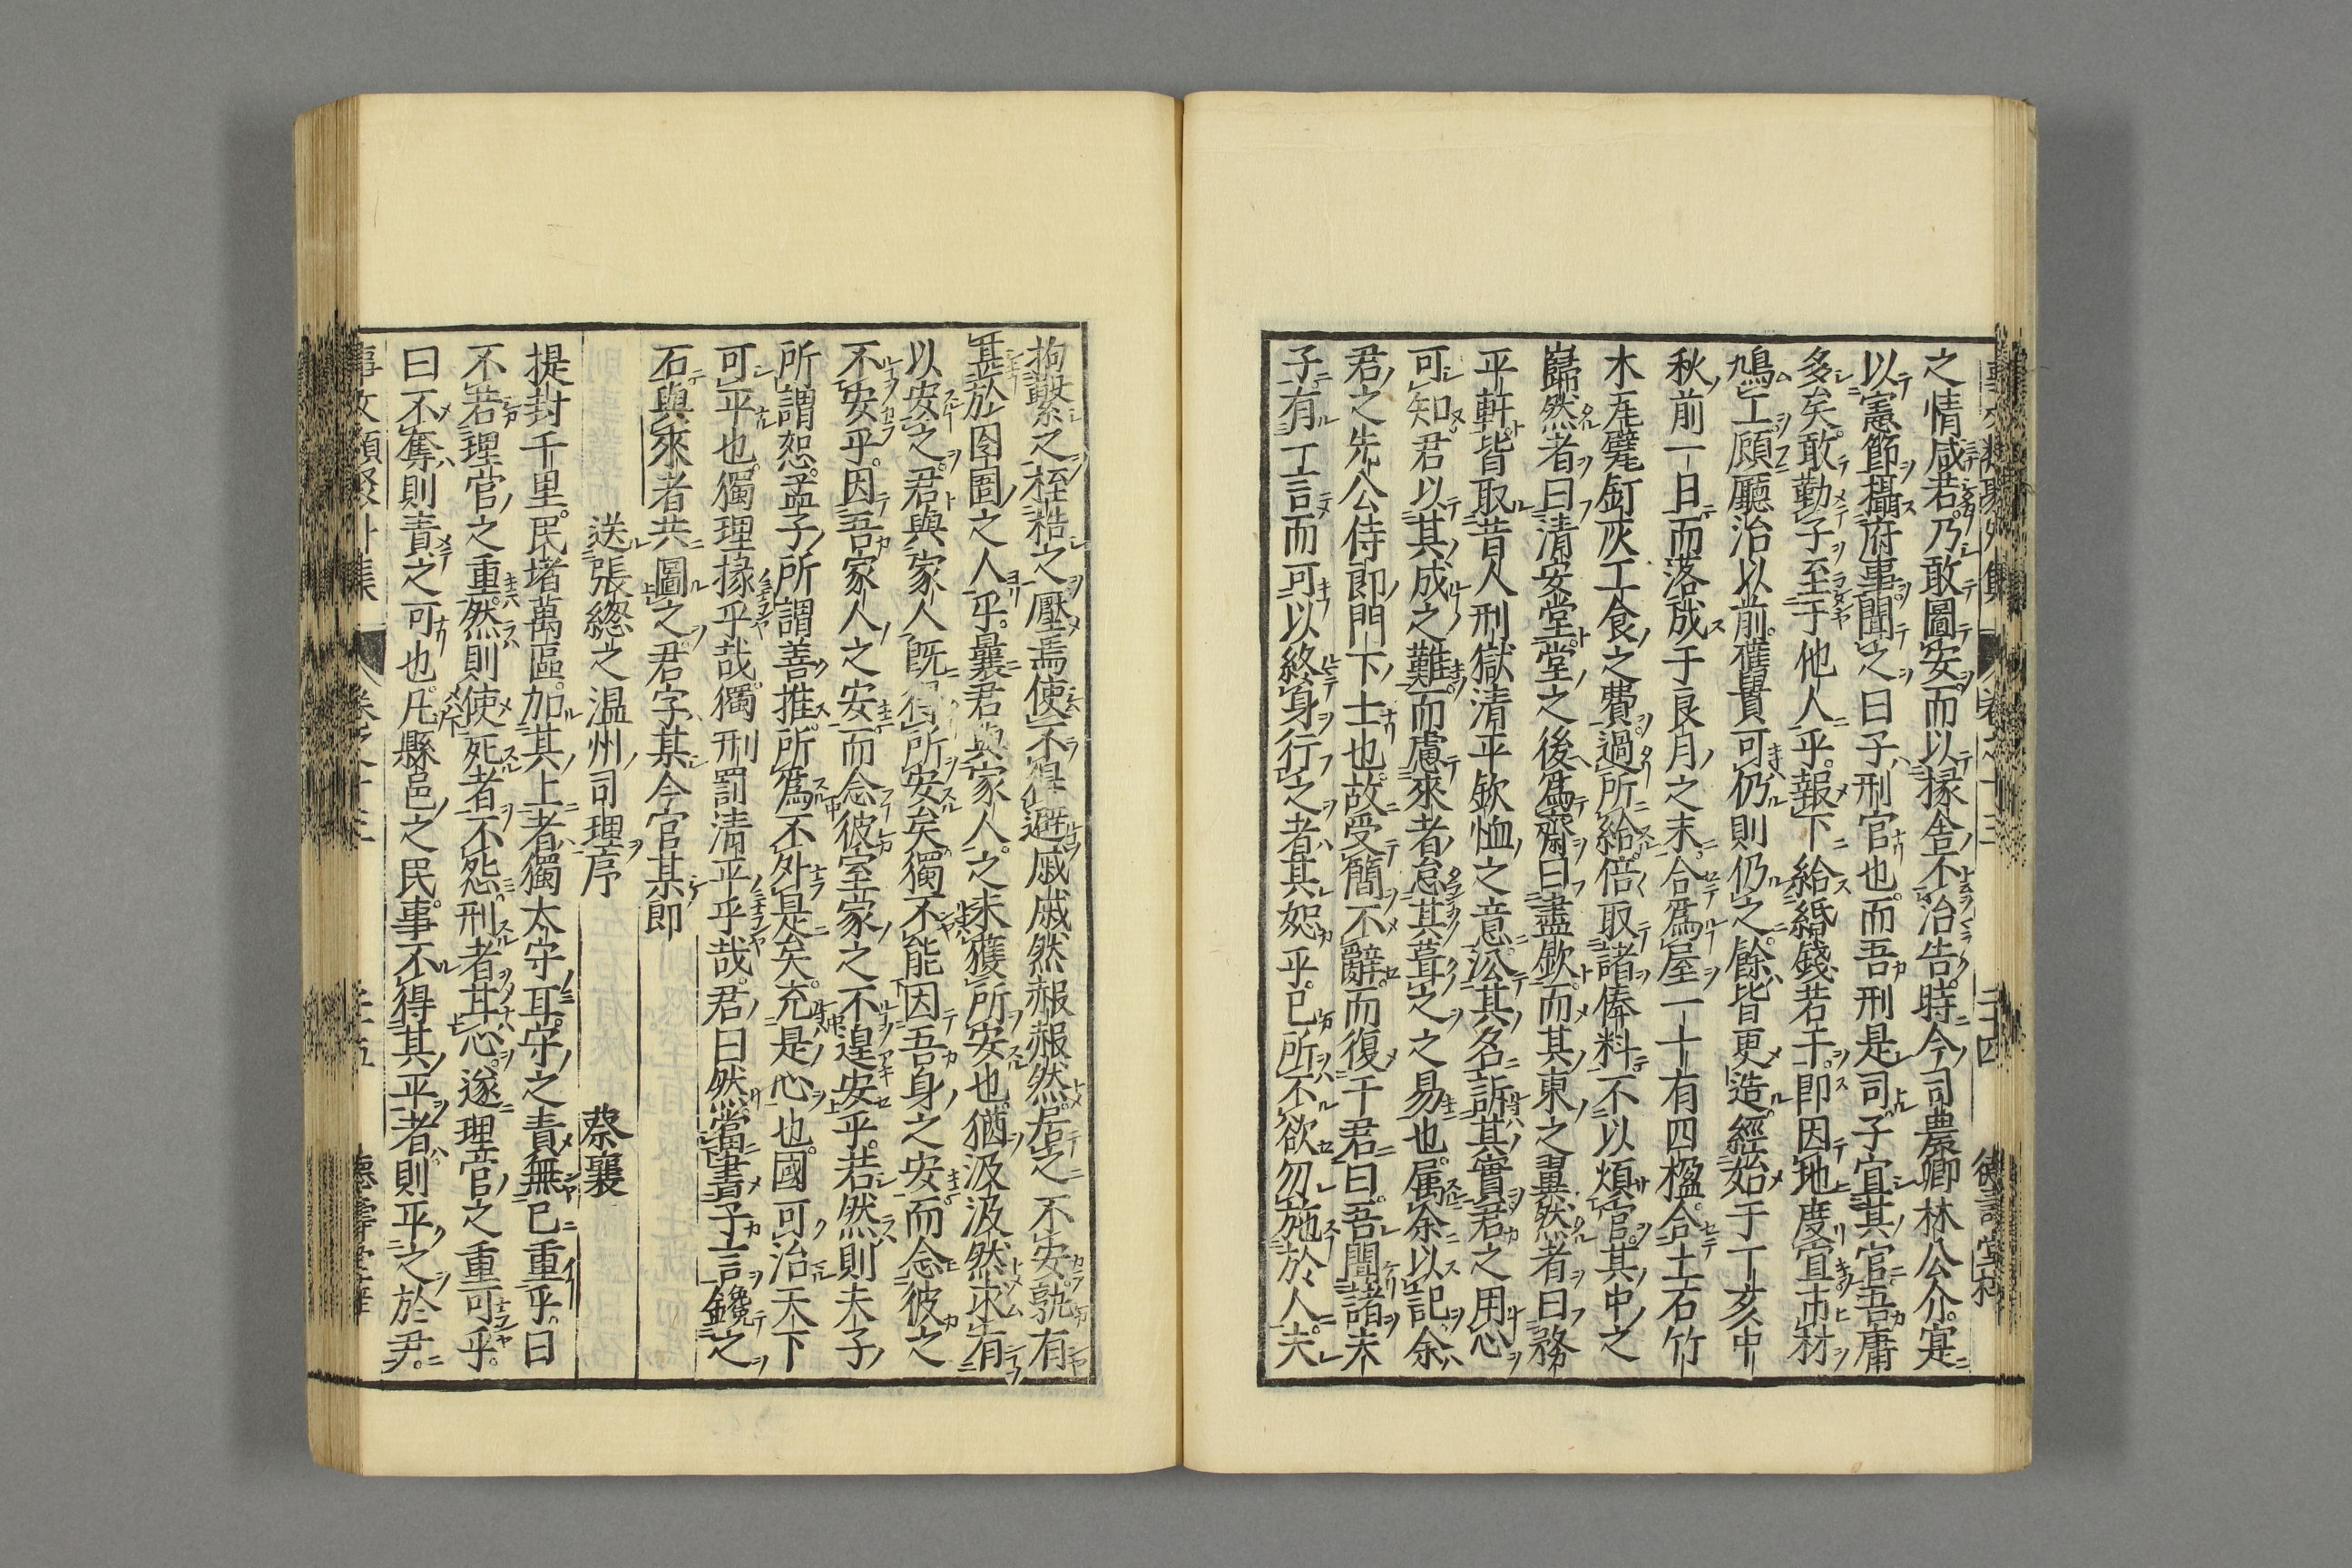 之情咸若乃敢圖安而以掾舍不治告時今司農卿林公介寔
以憲節攝府事聞之曰子刑官也而吾刑是司子宜其官吾庸
多矣敢勤子至于他人乎報下給緡錢若干即因地度宜市材
鳩工顧廳治以前舊貫可仍則仍之餘皆更造經始于丁亥中
秋前一日而落成于良月之末合爲屋一十有四楹合土石竹
木瓦甓釘灰工食之費過所給倍取諸俸料不以煩官其中之
巋然者曰清安堂堂之後爲齋曰盡欽而其東之翼然者曰務
平軒皆取昔人刑獄清平欽恤之意泒其名訴其實君之用心
可知君以其成之難而慮來者怠其葺之之易也属余以記余
君之先公侍郎門下士也故受簡不辭而復干君曰吾聞諸夫
子有一言而可以終身行之者其恕乎已所不欲勿施於人夫
拘繫之桎梏之壓焉使不得避戚戚然赧赧然居之不安孰有
甚於囹圄之人乎曩君與家人之未獲所安也猶汲汲然求有
以安之君與家人既得所安矣獨不能因吾身之安而念彼之
不安乎因吾家人之安而念彼室家之不遑安乎若然則夫子
所謂恕孟子所謂善推所爲不外是矣充是心也國可治天下
可平也獨理掾乎哉獨刑罰清平乎哉君曰然當書子言鑱之
石與來者共圖之君字某今官某郎
送張緫之温州司理序　蔡襄
提封千里民堵萬區加其上者獨太守耳守之責無已重乎曰
不若理官之重然則使死者不怨刑者甘心遂理官之重可乎
曰不奪則責之可也凡縣邑之民事不得其平者則平之於尹